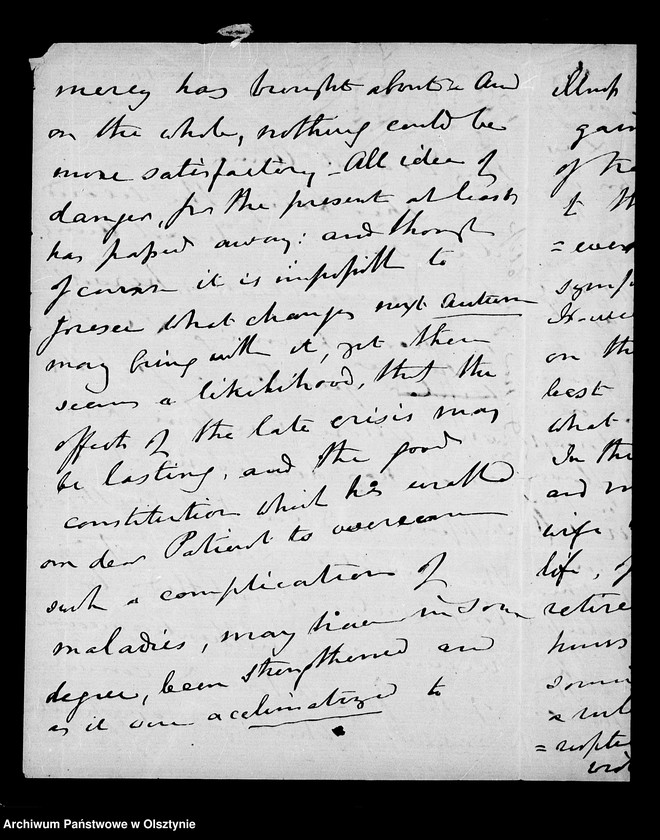 mercy has brought about. And
on the whole, nothing could be
more satisfactory - All idea of
danger, for the present at least
has passed away: and though
of course it is impossible to
foresee what changes next autumn
may bring with it, yet there
seems a likelihood, that the
effects of the late crisis may
be lasting, and the good
constitution which has enabled
our dear Patient to overcome
such a complication of
maladies, may have in some
degree, been strengthened and
as it were acclimatized to
illness
gain
of
of th
= ever
symp
Howe
on the
least
what
In the
and
wife
life, of
retire
hours
Archiwum Państwowe w Olsztynie